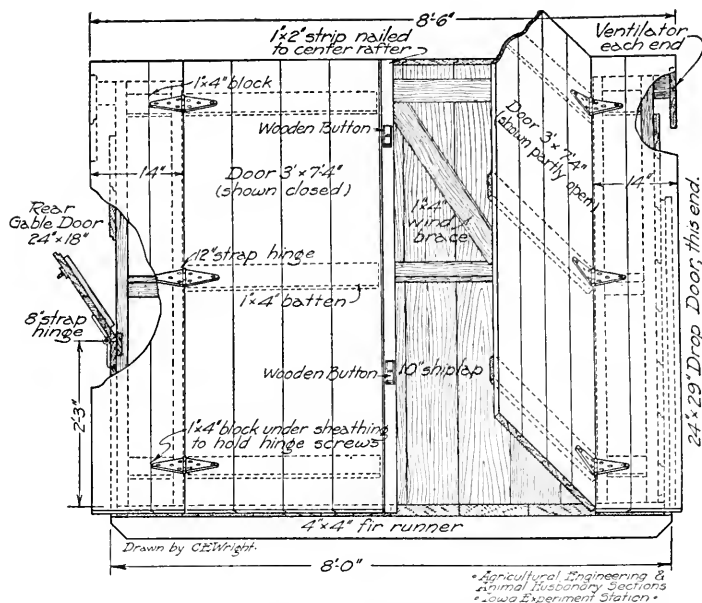 8'-6"
1"x2" strip nailed
to center rafter
Ventilator
each end
1"x4" block
Wooden Button
Door 3'x7'-4"
(shown closed)
Door 3'x7'-4"
(shown partly open)
14"
14"
Rear
Gable Door
24"x18"
1"x4"
wind
brace
12" strap hinge
1"x4" batten
8" strap
hinge
Wooden Button
10" shiplap
2'-3"
1"x4" block under sheathing
to hold hinge screws
24"x29" Drop Door, this end.
4"x4" fir runner
Drawn by C.F.Wright.
8'-0"
• Agricultural Engineering &
Animal Husbandry Sections
• Iowa Experiment Station •